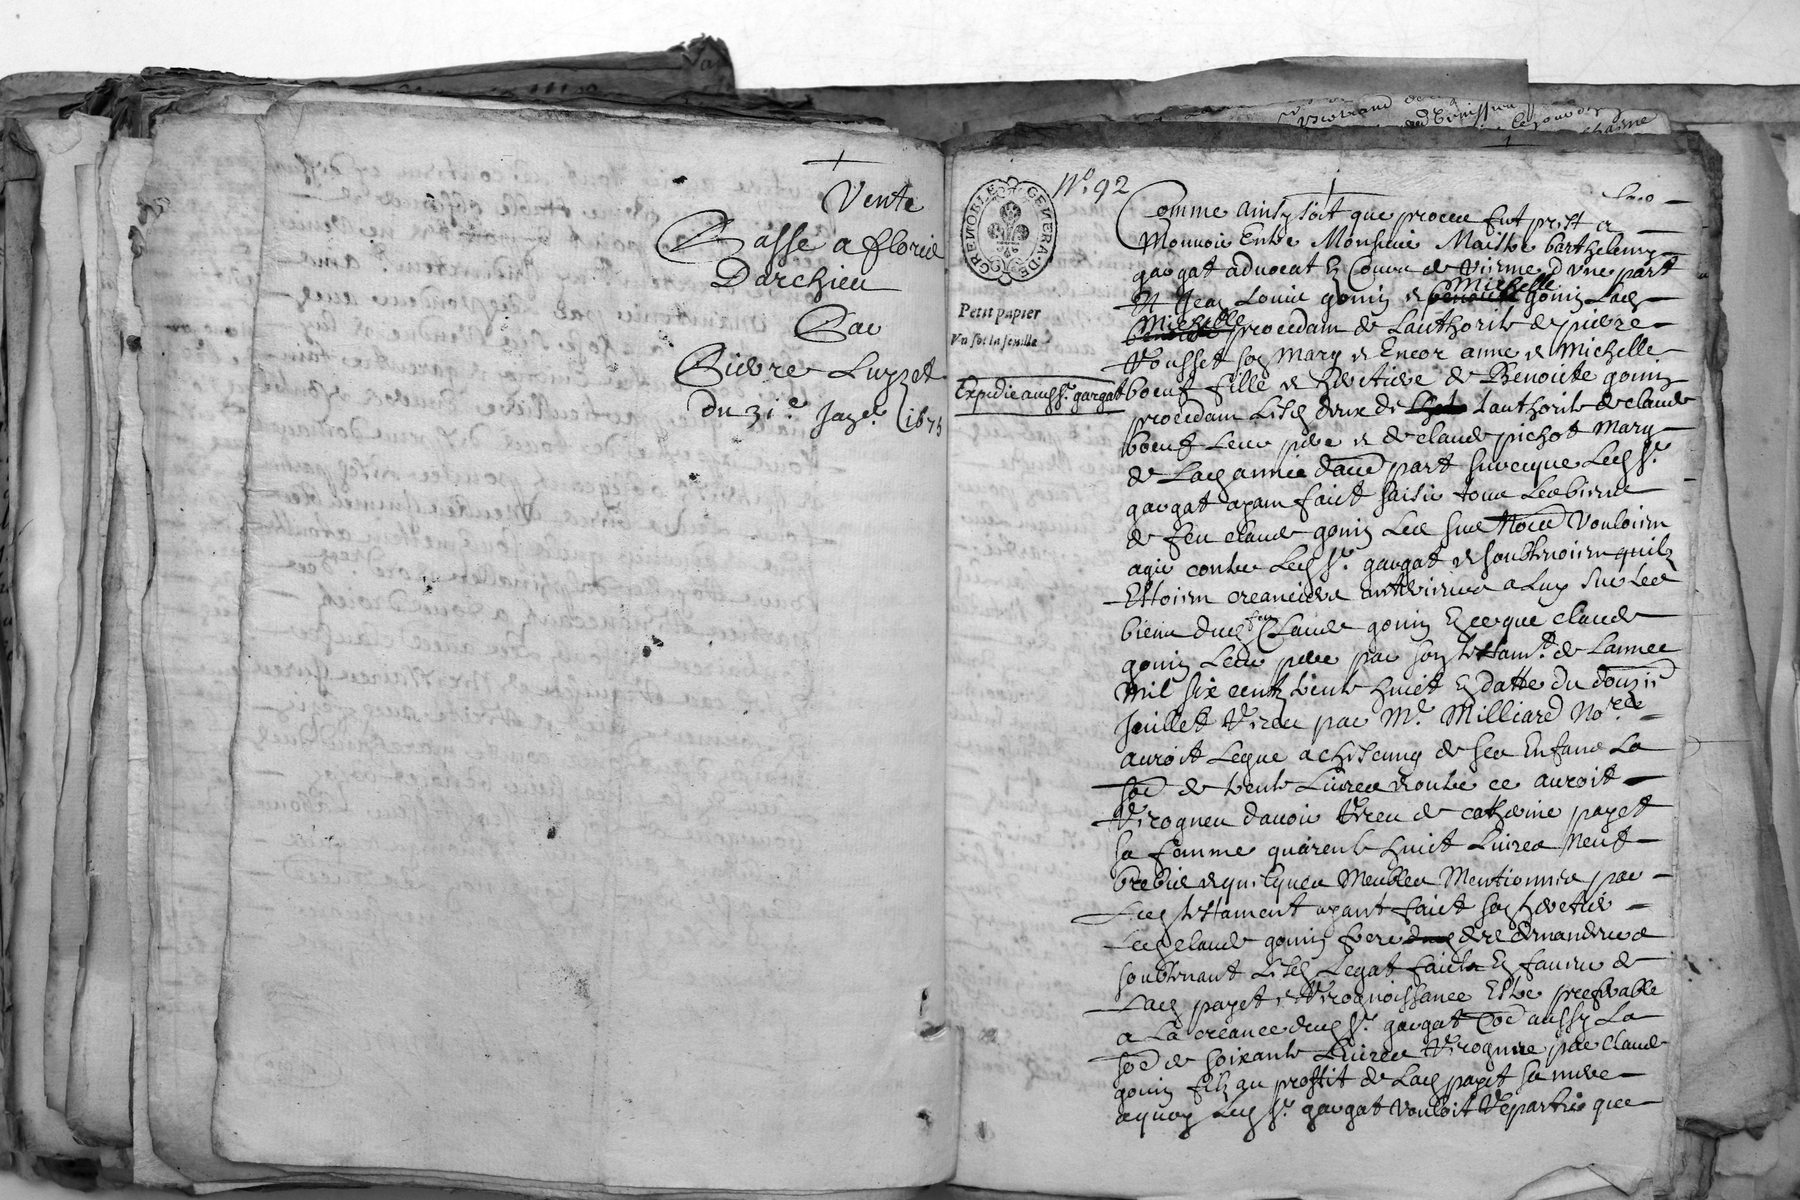 Vente
Passe a florie
Darchieu
Par
Pierre Luyzet
Du 31e Janer 1675
No. 92
GRENOBLE GENERA DE
Petit papier
Un sol la feuille
Expedie audt Sr. gargat
Comme ainsy soit que proces fut prest a
Mouuoir Entre Monsieur Maistre barthelemy
gargat aduocat En Cour de Vienne dune part
Et Jean Louis gonin & Michelle gonin Lad
Michelle procedant de Lauthorite de pierre
Vousset son Mary & Encor anne & Michelle
boeuf fille & heretiere de Benoicte gonin
procedant Lesd deux de Lauthorite de claude
boeuf Leur pere & de claude pichot Mary
de Lad annie dautre part sur ceque Led Sr.
gargat ayant faict saisir tous Les biens
de feu claude gonin Les sus nommes Vouloient
agir contre Led Sr. gargat & soubtenoient quilz
Estoient creanciers anterieurs a Luy sur Les
biens dud feu Claude gonin En ce que claude
gonin Leur pere par son testamt. de Lannee
Mil six centz trente huict En datte du douzie
Juillet Receu par Me. Milliard Nore
auroit Legue a chascung de ses Enfans La
some de trente Liures & outre ce auroit
Recogneu dauoir Receu de catherine payet
sa femme quarente huict Liures Neuf
brebis & quelques Meubles Mentionnes par
Led testament ayant faict son heretier
Led claude gonin frere des demandeurs
soubtenant Lesd Legat faicts En faueur de
Lad payet & Recognoissance Estre preferable
a La creance dud Sr. gargat Come aussy La
some de soixante Liures Recognue par Claude
gonin filz au proffit de Lad payet sa mere
aquoy Led Sr. gargat Vouloit Repartir que